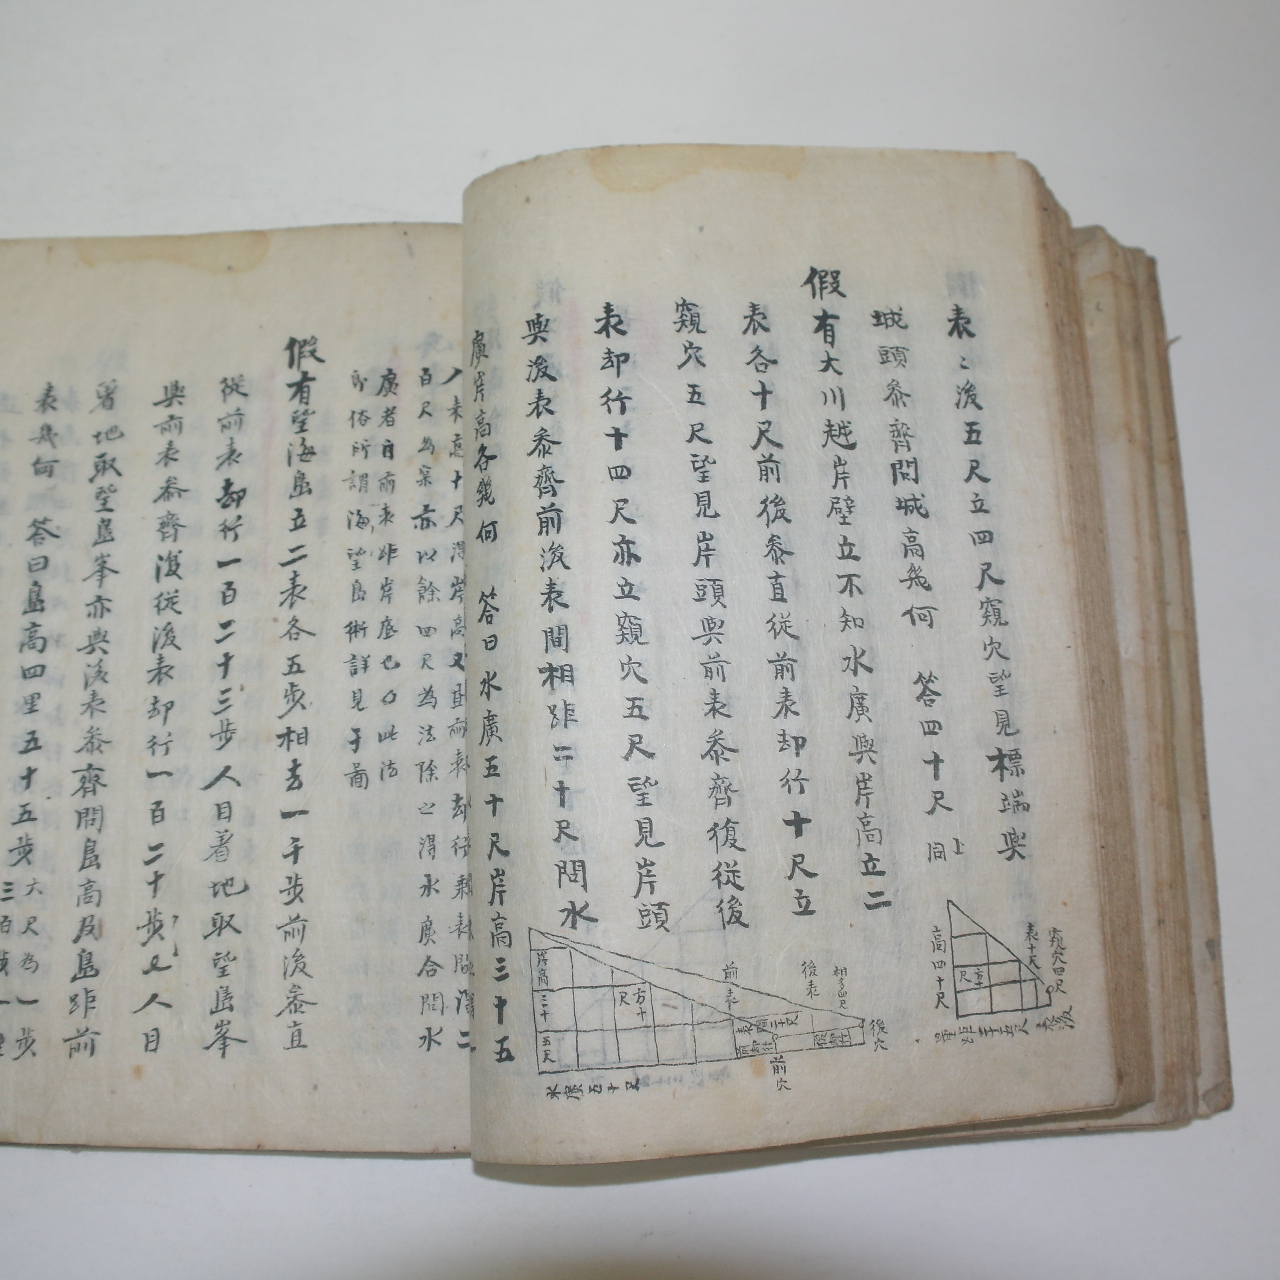 表〻後五尺立四尺窺穴望見標端與
城頭叅齊問城高幾何　答四十尺　上同
假有大川越岸壁立不知水廣與岸高立二
表各十尺前後叅直從前表却行十尺立
窺穴五尺望見岸頭與前表叅齊復從後
表却行十四尺亦立窺穴五尺望見岸頭
與後表叅齊前後表間相距二十尺問水
廣岸高各幾何　答曰水廣五十尺岸高三十五
表十尺
窺穴四尺
高四十尺
後表
前表
後穴
前穴
方十尺
岸高三十
五尺
水廣五十尺
百尺為宲亦以餘四尺為法除之得水廣合問水
廣者自前表距岸底也○此法
即俗所謂海望島術詳見于啚
假有望海島立二表各五步相去一千步前後叅直
從前表却行一百二十三步人目着地取望島峯
與前表叅齊後從後表却行一百二十步七人目
着地取望島峯亦與後表叅齊問島高及島距前
表幾何　答曰島高四里五十五步